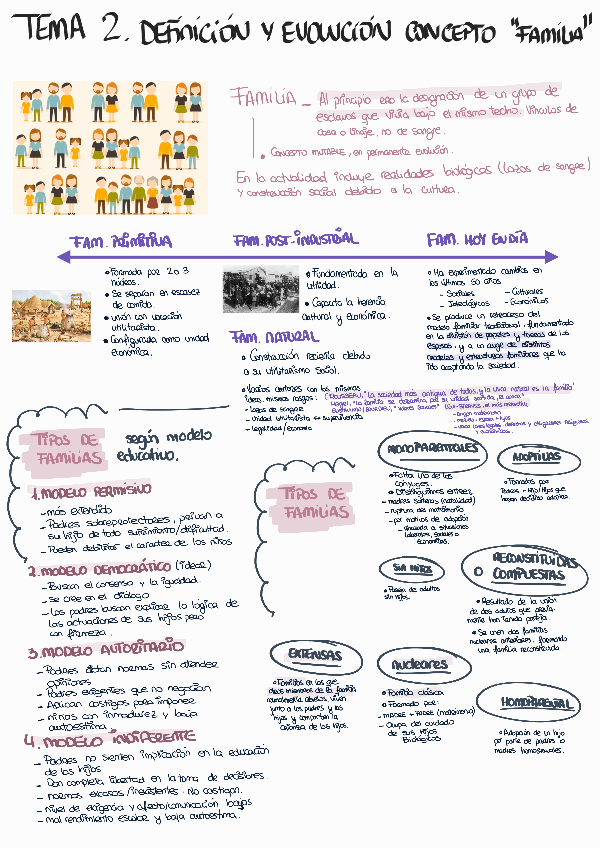 TEMA 2. DEFINICIÓN Y EVOLUCIÓN CONCEPTO "FAMILIA"
FAMILIA _ Al principio era la designación de un grupo de
esclavos que vivía bajo el mismo techo. Vínculos de
casa o linaje, no de sangre.
• CONCEPTO MUTABLE, en permanente evolución.
En la actualidad incluye realidades biológicas (lazos de sangre)
y construcción social debido a la cultura.
FAM. PRIMITIVA
• Formada por 2 o 3
núcleos.
• Se separan en escasez
de comida
• unión con vocación
utilitarista.
• Configurada como unidad
económica.
FAM. POST-INDUSTRIAL
• Fundamentada en la
utilidad.
• Capacita la herencia
cultural y económica.
FAM. NATURAL
• Construcción reciente debido
a su utilitarismo social.
• Varios autores con las mismas
ideas, mismos rasgos:
- lazos de sangre
- unidad utilitarista => supervivencia
- legalidad/economía
FAM. HOY EN DÍA
• Ha experimentado cambios en
los últimos 50 años
- Sociales - Culturales
- Ideológicos - Económicos
• Se produce un retroceso del
modelo familiar tradicional, fundamentado
en la división de papeles y tareas de los
esposos, y a un auge de distintos
modelos y estructuras familiares que ha
ido adoptando la sociedad.
(ROUSSEAU, "La sociedad más antigua de todas, y la única natural es la familia"
- origen matrimonio
- marido, esposa e hijos
TIPOS DE
FAMILIAS
según modelo
educativo.
1. MODELO PERMISIVO
- más extendido
- Padres sobreprotectores, evitan a
su hijo de todo sufrimiento/dificultad.
- Pueden debilitar el carácter de los niños
2. MODELO DEMOCRÁTICO (ideal)
- Buscan el consenso y la igualdad.
- Se cree en el diálogo
- Los padres buscan explicar la lógica de
las actuaciones de sus hijos pero
con firmeza.
3. MODELO AUTORITARIO
- Padres dictan normas sin atender
opiniones
- Padres exigentes que no negocian
- Aplican castigos para imponer
- niños con inmadurez y baja
autoestima
4. MODELO INDIFERENTE
- Padres no sienten implicación en la educación
de los hijos
- Dan completa libertad en la toma de decisiones.
- normas escasas/inexistentes. No castigan.
- nivel de exigencia y afecto/comunicación bajos
- mal rendimiento escolar y baja autoestima.
TIPOS DE
FAMILIAS
MONOPARENTALES
• Falta uno de los
cónyuges.
• Distinguimos entre:
- madres solteras (natalidad)
- ruptura del matrimonio
- por motivos de adopción
- vinculada a situaciones
laborales, sociales o
económicas.
ADOPTIVAS
• Formadas por
Padres + Hijo/Hijos que
hayan decidido adoptar.
SIN HIJOS
• Pareja de adultos
sin hijos.
RECONSTITUIDAS
O COMPUESTAS
• Resultado de la unión
de dos adultos que previa-
mente han tenido pareja.
• Se unen dos familias
nucleares anteriores, formando
una familia reconstituida
EXTENSAS
• Familias en las que
otros miembros de la familia
normalmente abuelos, viven
junto a los padres y los
hijos y comparten la
crianza de los hijos.
NUCLEARES
• Familia clásica
• Formada por:
- MADRE + PADRE (matrimonio)
- Ocupa del cuidado
de sus hijos
Biológicos
HOMOPARENTAL
• Adopción de un hijo
por parte de padres o
madres homosexuales.